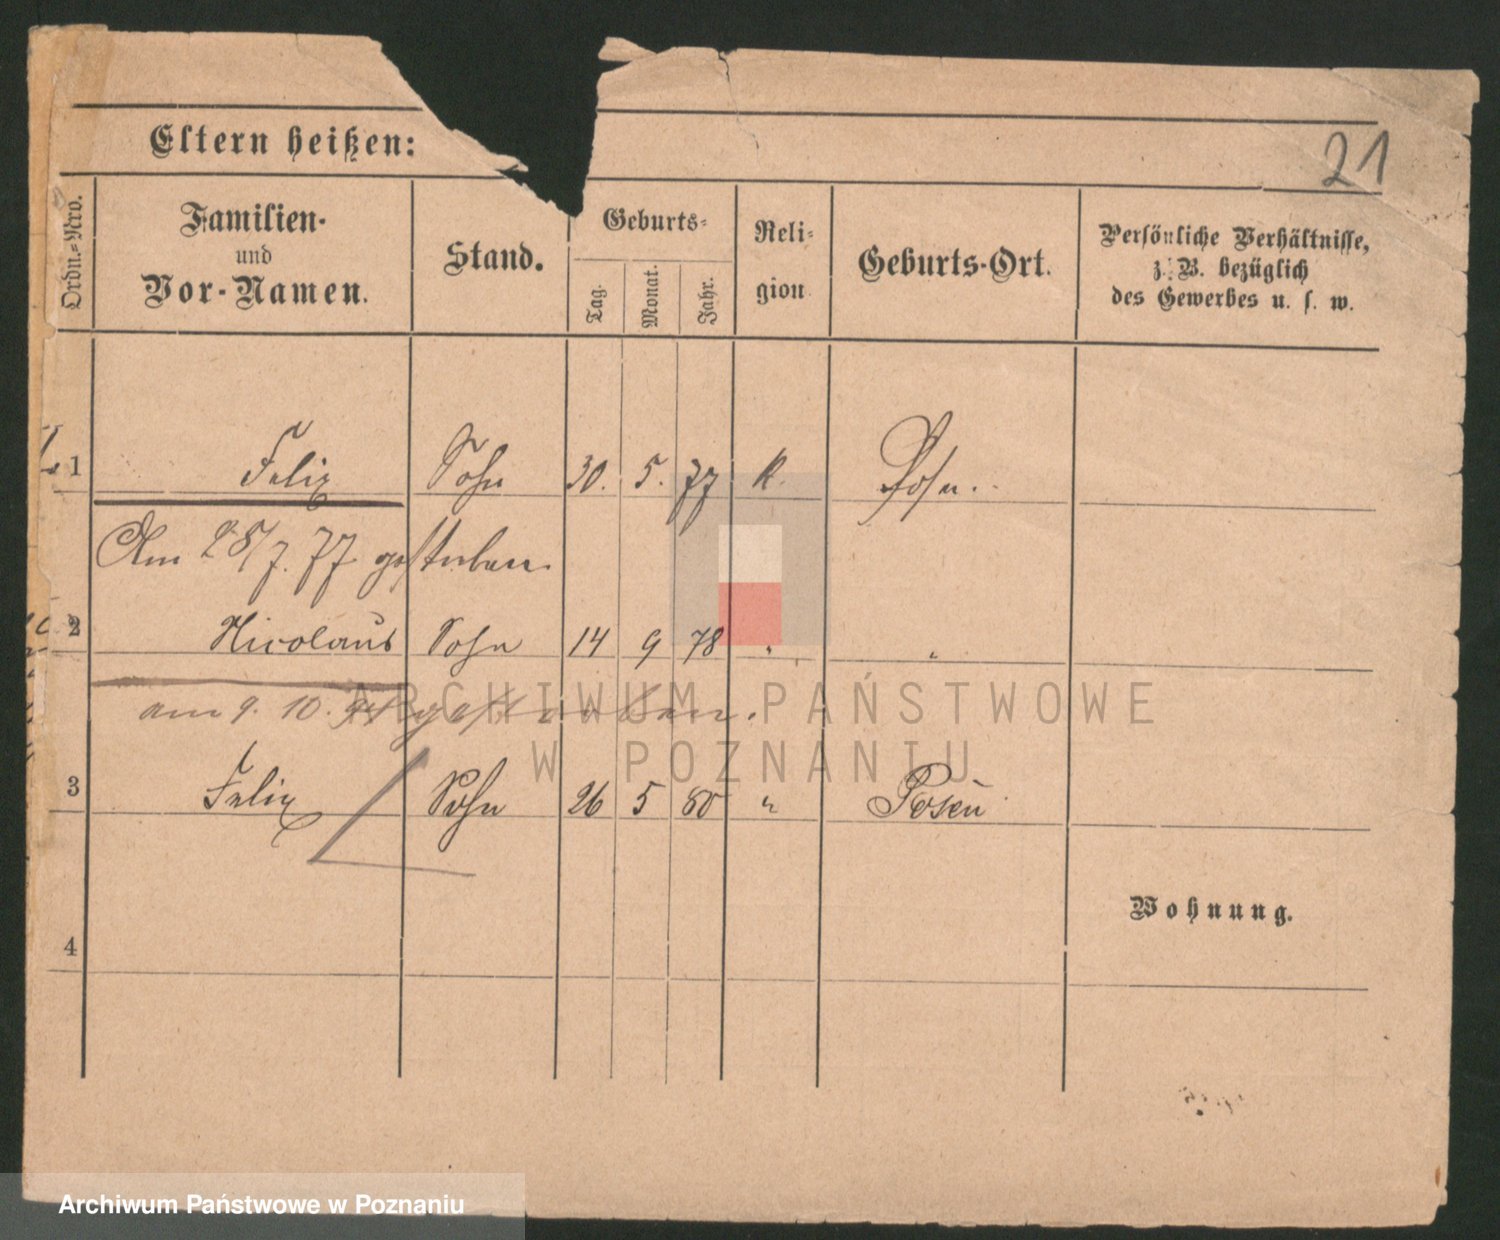 21
Eltern heißen:
Ordn.-Nro. Familien- und Vor-Namen. Stand. Geburts- Tag. Monat. Jahr. Reli- gion Geburts-Ort. Persönliche Verhältnisse, z. B. bezüglich des Gewerbes u. s. w.
1 Felix Sohn 30. 5. 77 K. Posen.
Am 28/7. 77 gestorben.
2 Nicolaus Sohn 14 9 78 " "
am 9. 10. gestorben.
3 Felix Sohn 26 5 80 " Posen
Wohnung.
4
ARCHIWUM PAŃSTWOWE
W POZNANIU
Archiwum Państwowe w Poznaniu